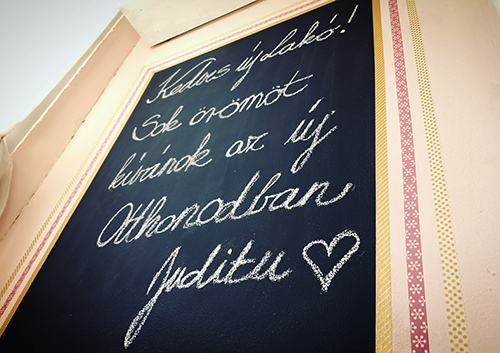 Kedves újlakó!
Sok örömöt
kívánok az új
Otthonodban
Juditu ♡